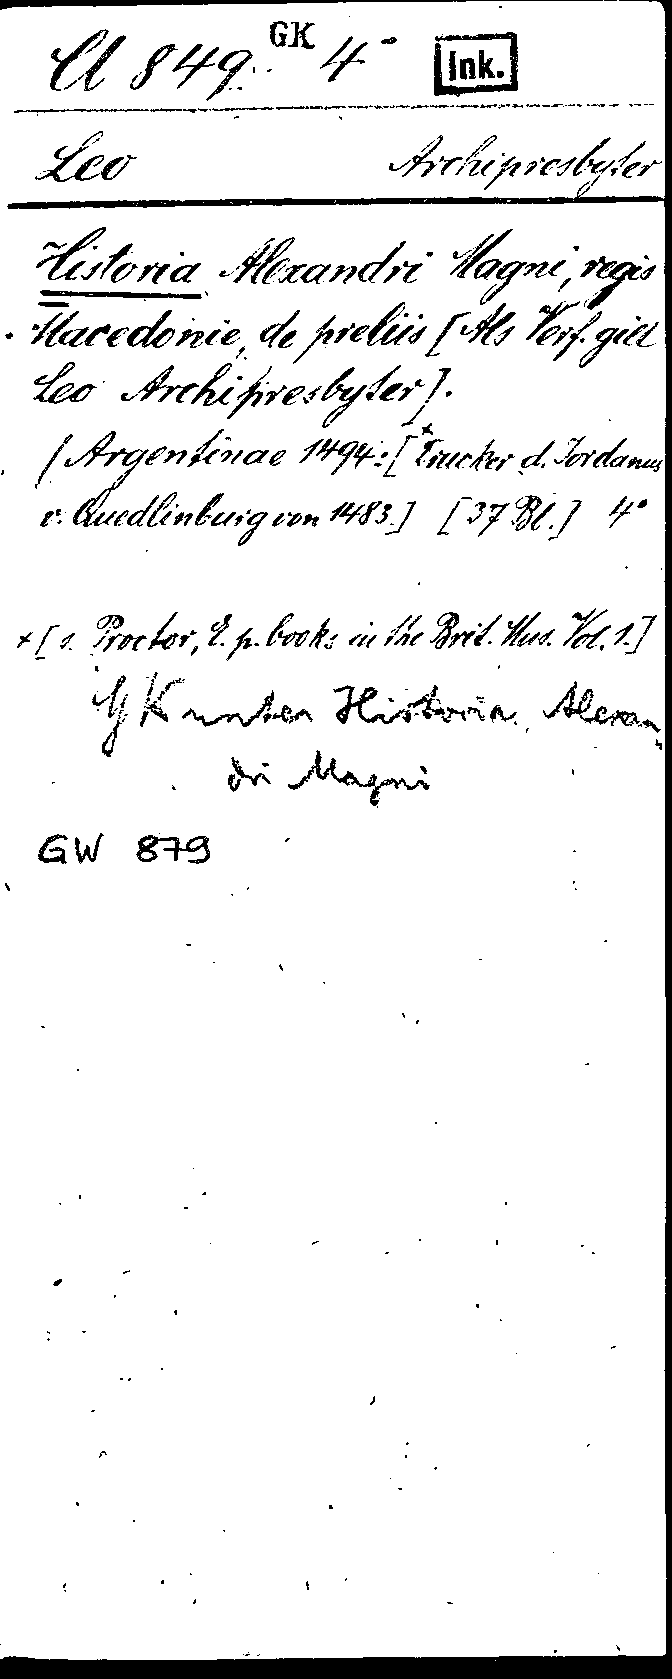 Cl 849. GK 4° Ink.
Leo Archipresbyter
Historia Alexandri Magni, regis
Macedonie, de preliis [Als Verf. gilt
Leo Archipresbyter].
(Argentinae 1494: [+Drucker d. Jordanus
v. Quedlinburg von 1483.] [37 Bl.] 4°
+[s. Proctor, E. p. books in the Brit. Mus. Vol. 1.]
GK unter Historia Alexan-
dri Magni
GW 879